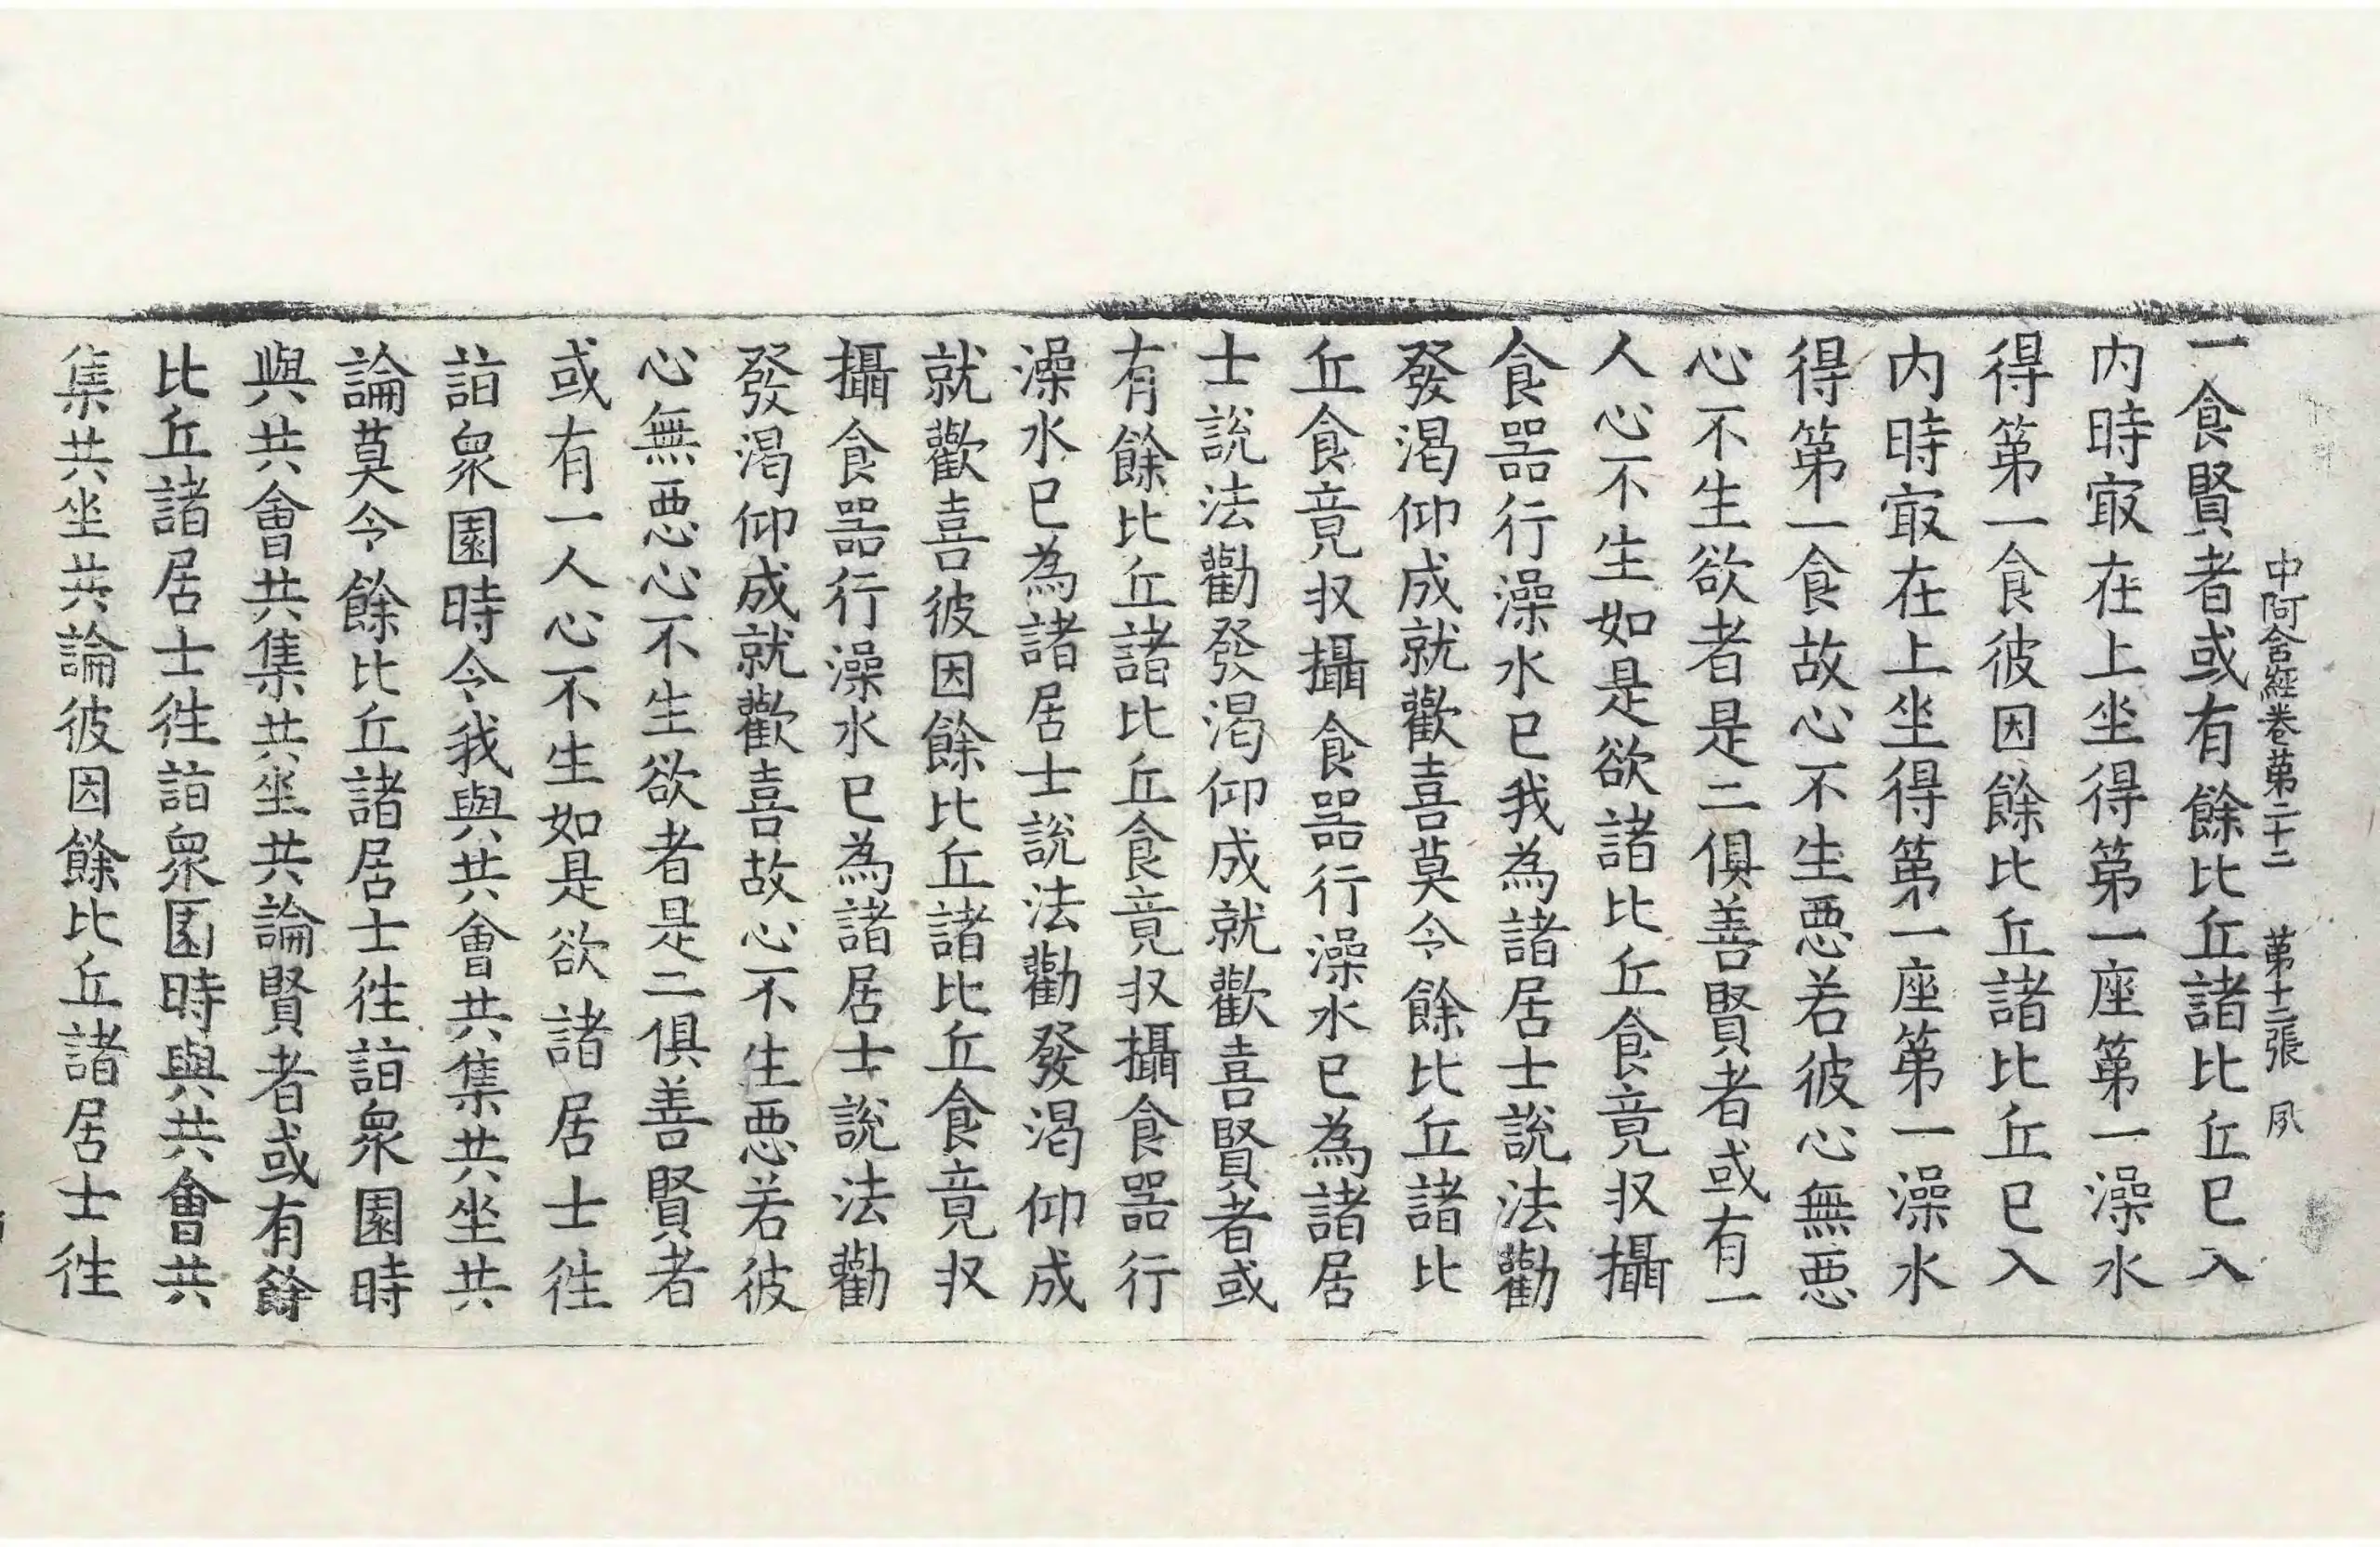 中阿含經卷苐二十二　苐十二張　夙
一食賢者或有餘比丘諸比丘已入
内時㝡在上坐得第一座第一澡水
得第一食彼因餘比丘諸比丘已入
内時㝡在上坐得第一座第一澡水
得第一食故心不生悪若彼心無悪
心不生欲者是二俱善賢者或有一
人心不生如是欲諸比丘食竟収攝
食噐行澡水已我為諸居士說法勸
發渴仰成就歡喜莫令餘比丘諸比
丘食竟収攝食噐行澡水已為諸居
士說法勸發渴仰成就歡喜賢者或
有餘比丘諸比丘食竟収攝食噐行
澡水已為諸居士說法勸發渴仰成
就歡喜彼因餘比丘諸比丘食竟収
攝食噐行澡水已為諸居士說法勸
發渴仰成就歡喜故心不生悪若彼
心無悪心不生欲者是二俱善賢者
或有一人心不生如是欲諸居士徃
詣衆園時令我與共㑹共集共坐共
論莫令餘比丘諸居士徃詣衆園時
與共㑹共集共坐共論賢者或有餘
比丘諸居士徃詣衆園時與共㑹共
集共坐共論彼因餘比丘諸居士徃